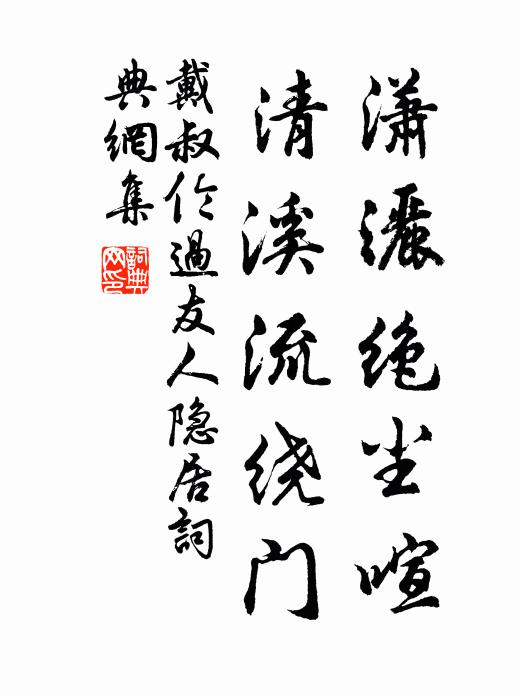 潇灑绝尘喧
清溪流绕门
戴叔伦過友人隐居詞
典網集
詞典网印